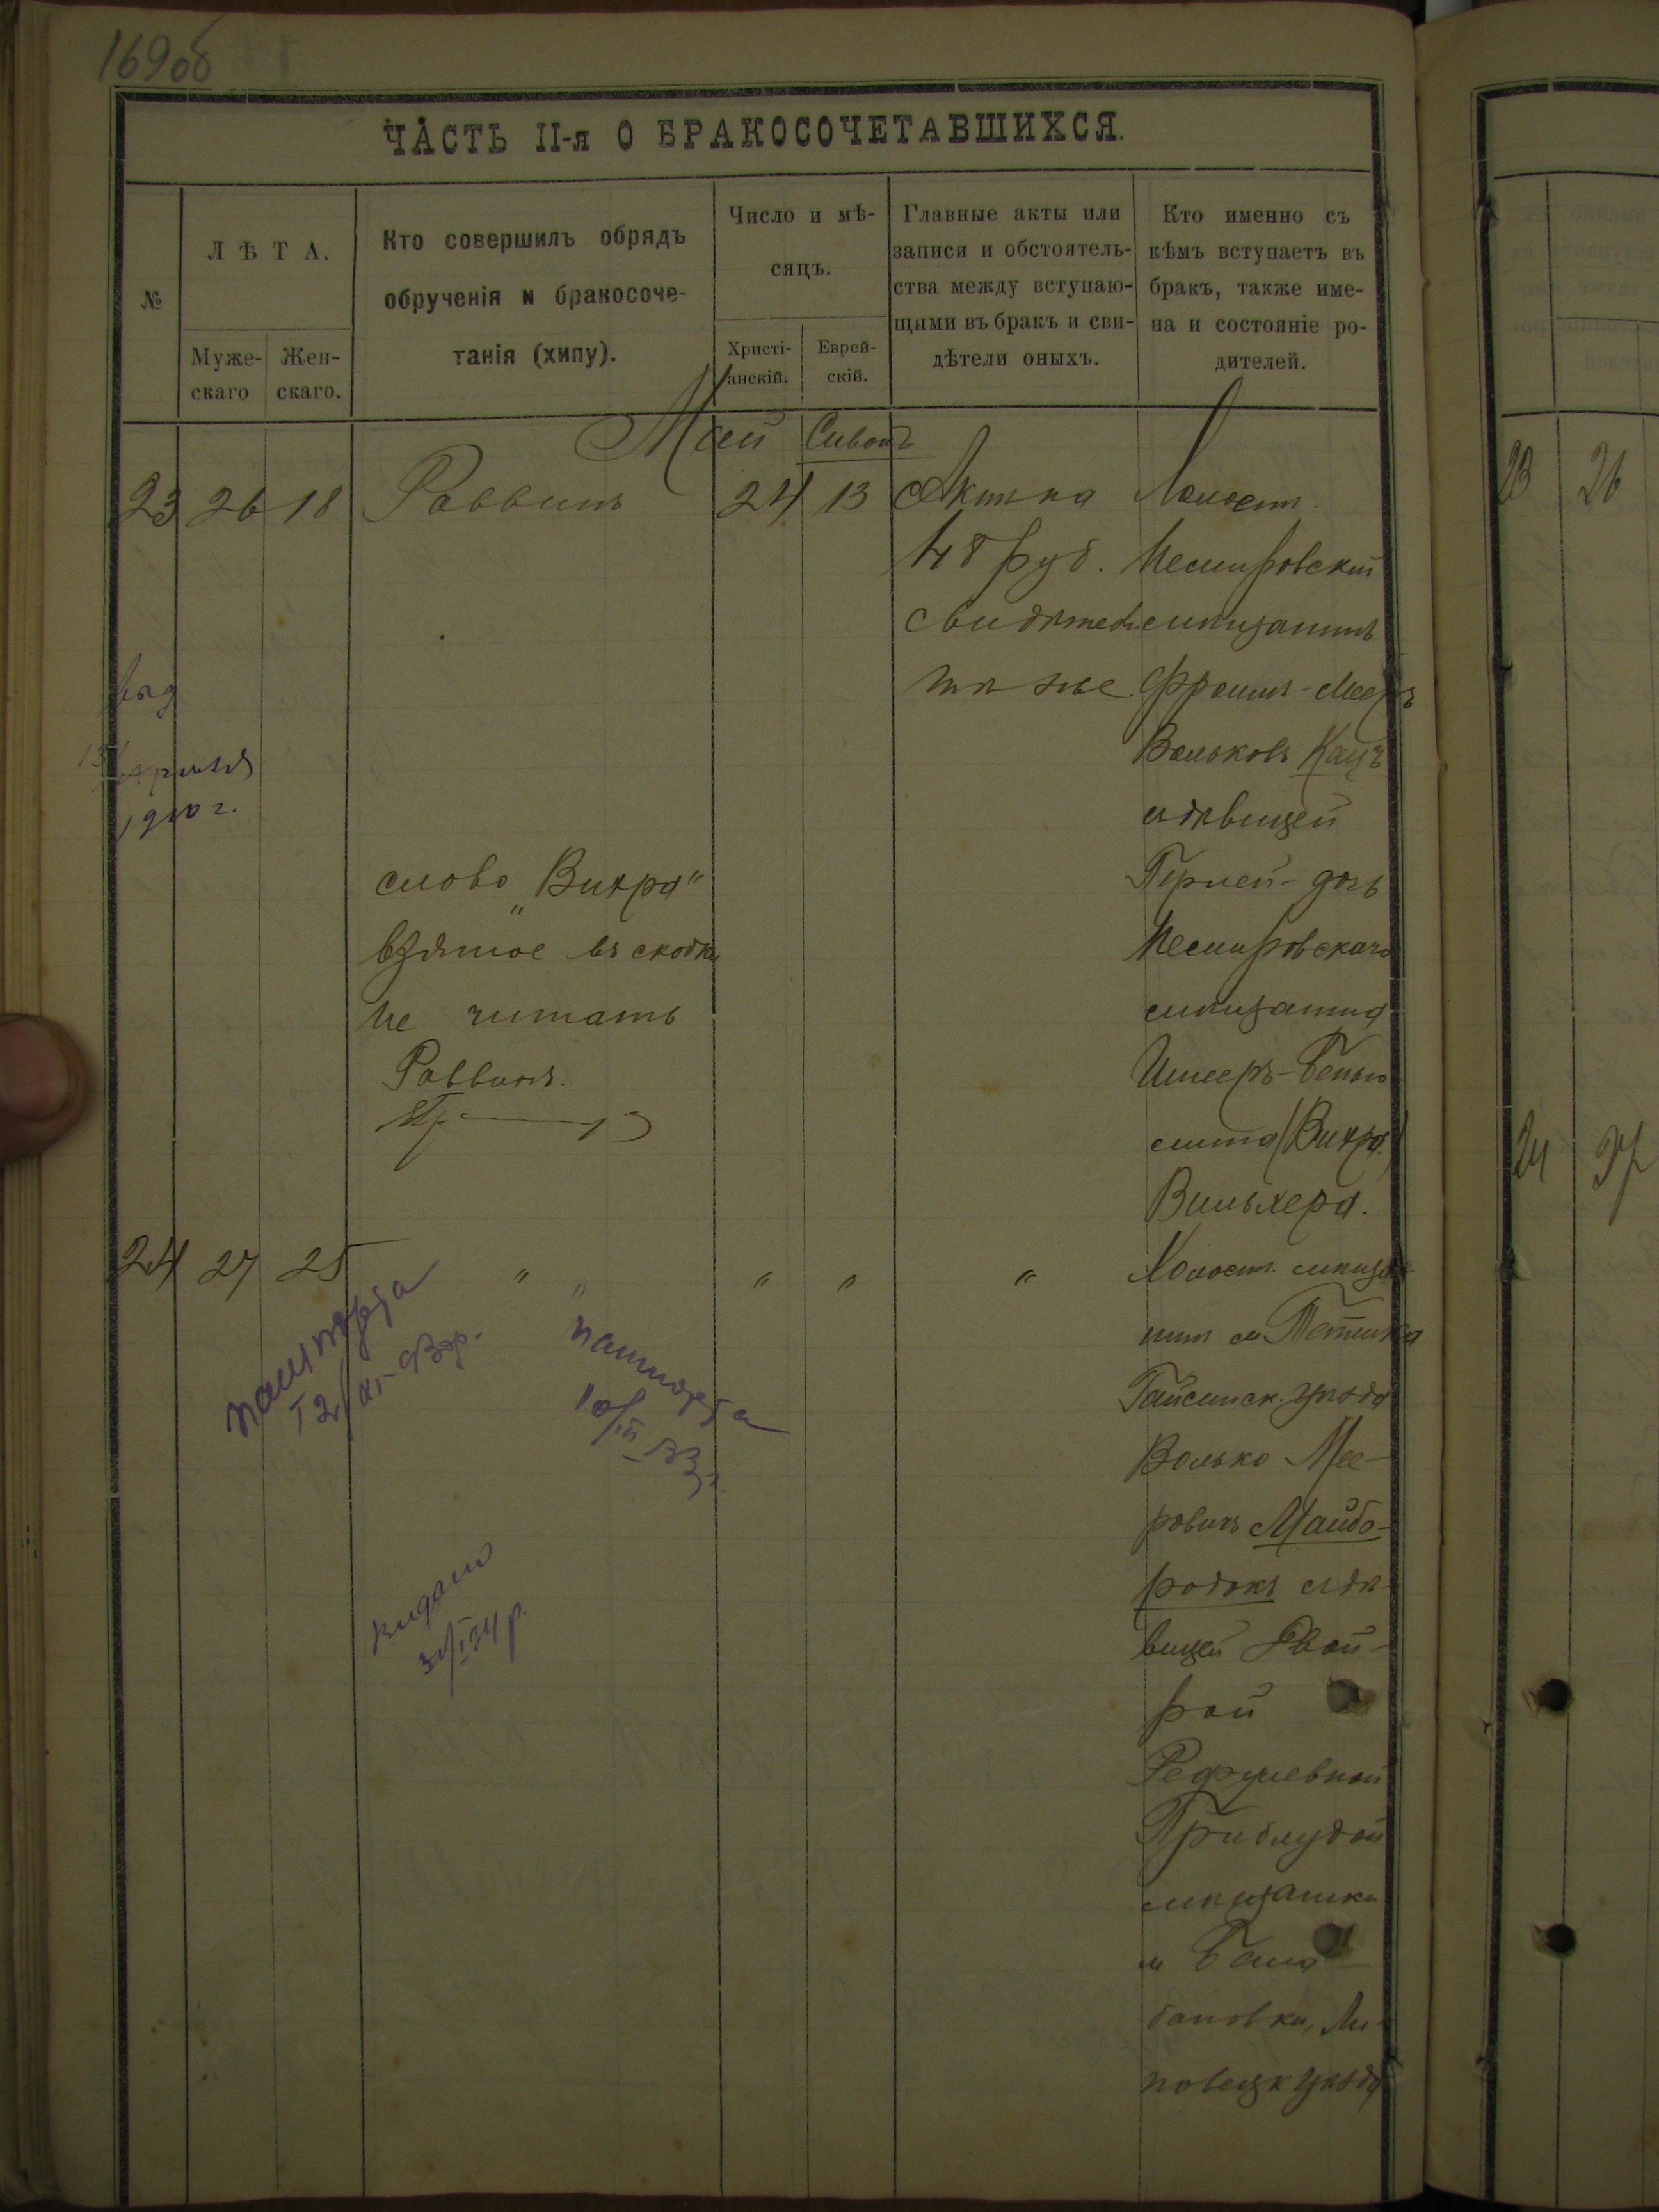 169об
ЧАСТЬ II-я О БРАКОСОЧЕТАВШИХСЯ.
№
ЛѢТА.
Муже-
скаго
Жен-
скаго.
Кто совершилъ обрядъ
обрученія и бракосоче-
танія (хипу).
Число и мѣ-
сяцъ.
Христі-
анскій.
Еврей-
скій.
Главные акты или
записи и обстоятель-
ства между вступаю-
щими въ бракъ и сви-
дѣтели оныхъ.
Кто именно съ
кѣмъ вступаетъ въ
бракъ, также име-
на и состояніе ро-
дителей.
Май Сивонъ
23 26 18 Раввинъ 24 13 Акт на
48 руб.
свидѣтели
тѣ же.
Холост.
Немировскій
мѣщанинъ
Фроим-Мееръ
Вольковъ Кацъ
с дѣвицей
Перлей-дочь
Немировскаго
мѣщанина
Шмееръ-Бенью
мина (Вихра)
Вильхера.
Апрѣля
1910 г.
слово „Вихра"
взятое въ скобки
не читать
Раввинъ.
24 27 25 " " " " "
Холост. мѣща
нин м Тетиика
Гайсинск. уѣзда
Волько Мее-
ровичъ Майбо-
родокъ с дѣ
вицей Двой-
рой
Рефулевной
Приблудой
мѣщанки
м Бала
бановки, Ли-
повецк уѣзда
пашпорта
пашпорта
10/III 33г.
видано
31/I 34 р.
23 26
24